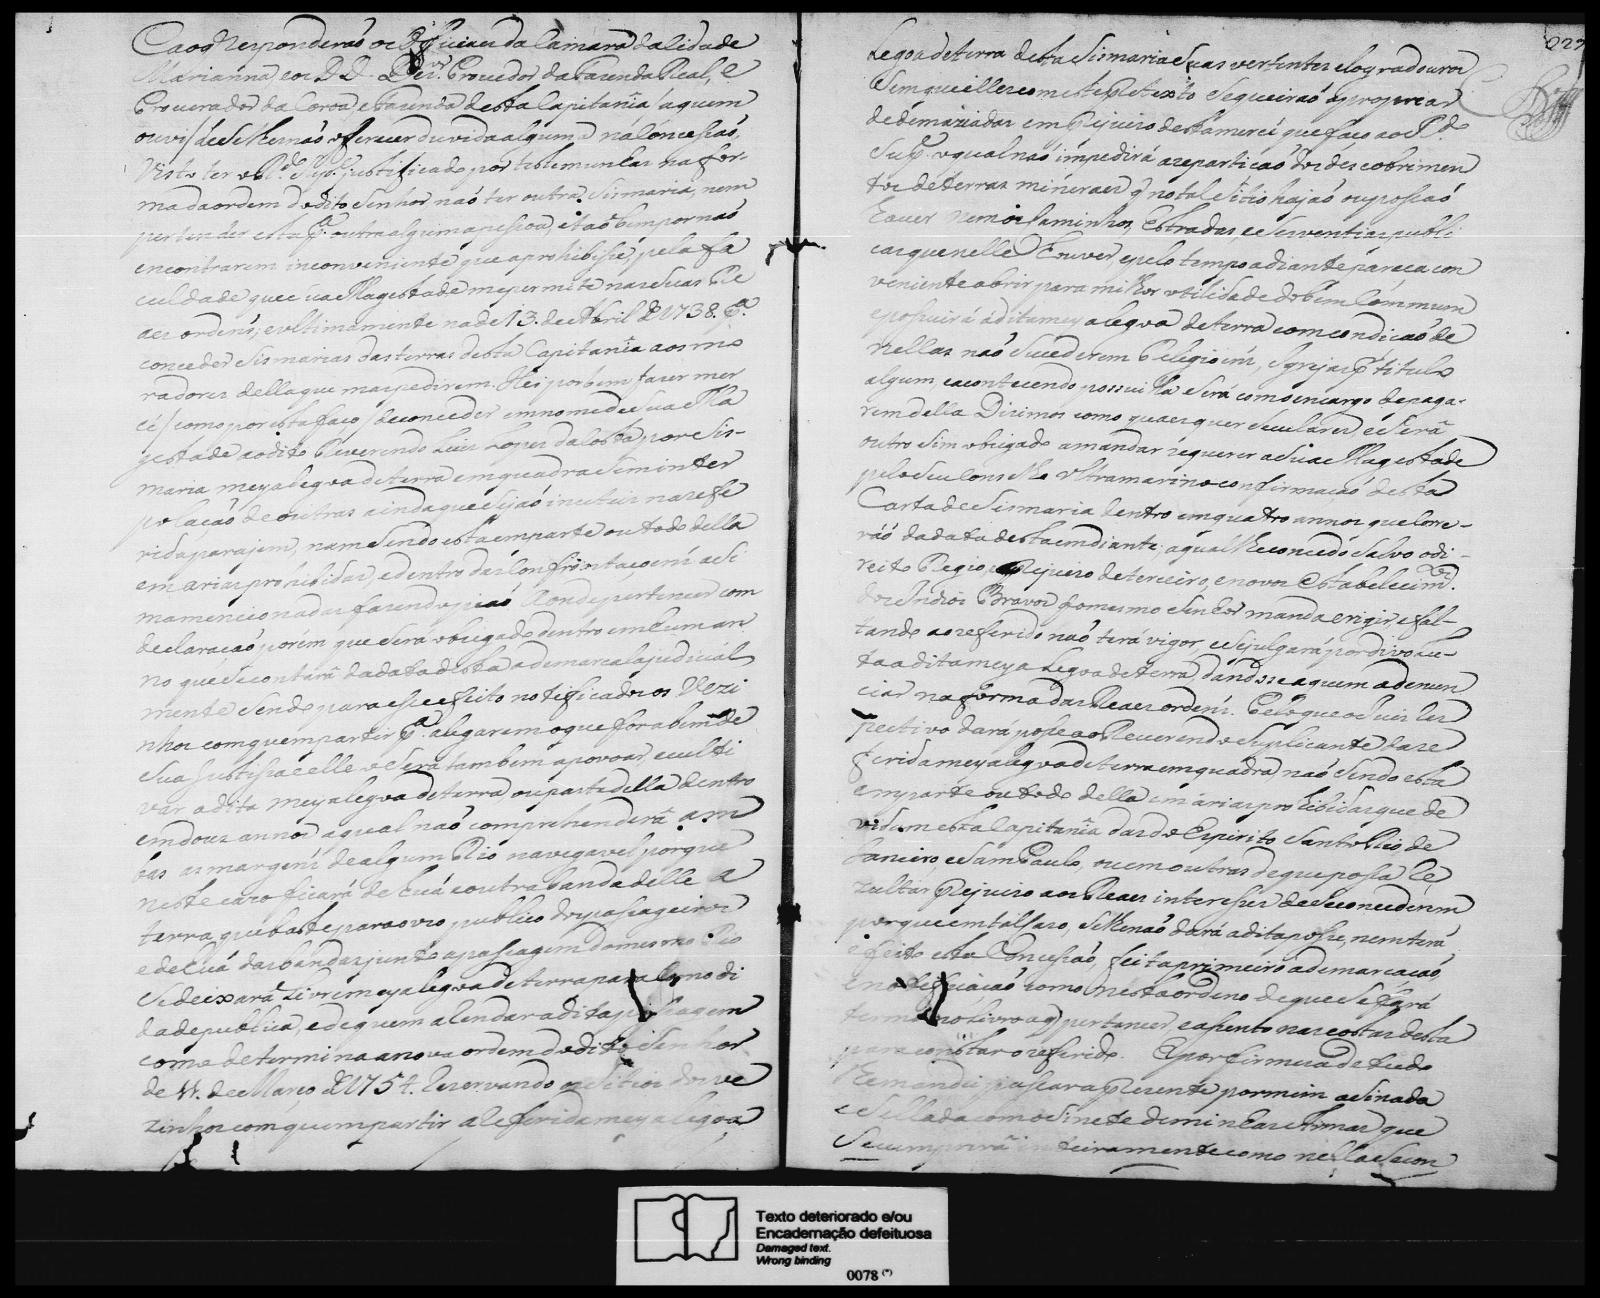 Cao q̃ responderaõ os Officiaes da Camara da Cidade
Marianna e os D.D. Dez.or Provedor da Fazenda Real, e
Procurador da Coroa, e Fazenda desta Capitania (a quem
ouvi) de Se lhe naõ offerecer duvida alguma na Concessaõ,
Visto ter o R.do Sup.e justificado por testemunhas na for-
ma da ordem do dito Senhor naõ ter outra Sismaria, nem
pertender esta p.a outra alguma pessoa, e taõ bem por naõ
encontrarem inconveniente que a prohibisse, pela fa
culdade que Sua Magestade me permite nas Suas Re
aes ordens, e ultimamente na de 13. de Abril de 1738. p.a
conceder Sismarias das terras desta Capitania aos mo
radores della que mas pedirem. Hei por bem fazer mer
cé (como por esta faço) de conceder em nome de Sua Ma
gestade ao dito Reverendo Luis Lopes da Costa por Sis-
maria meya legoa de terra em quadra Sem inter
polaçaõ de outras ainda que Sejaõ inuteis na refe
rida paragem, naõ Sendo esta em parte ou todo della
em arias prohibidas, e dentro das Confrontaçoens aci
ma mencionadas fazendo piaõ Aonde pertencer com
declaraçaõ porém que Será obrigado dentro em hum an
no que Se contará da data desta a demarcala judicial
mente Sendo para esse effeito notificados os Vezi
nhos com quem partir p.a alegarem o que for a bem de
Sua Justissa e elle o Será tambem a povoar, e culti
var a dita meya legoa de terra ou parte della dentro
em dous annos a qual naõ comprehenderá am
bas as margens de algum Rio navegavel porque
neste cazo ficará de huã e outra banda delle a
terra, que baste para o uzo publico dos passageiros
e de huã das bandas junto a passagem do mesmo Rio
Se deixará Livre meya legoa de terra para Comodi
dade publica, e de quem arendar a dita passagem
como determina a nova ordem do dito Senhor
de 11. de Março de 1754. Rezervando os Sitios dos ve
zinhos com quem partir a referida meya legoa
027
Legoa de terra desta Sismaria Suas vertentes e logradouros
Sem que elles com este pretexto Se queiraõ apropriar
de demaziadas em prejuizo desta mercé que faço ao R.do
Sup.e o qual naõ impedirá a repartiçaõ dos descobrimen
tos de terras mineraes q̃ no tal Sitio hajaõ ou possaõ
haver nem os Caminhos, Estradas, e Serventias publi
cas que nelle Houver, e pelo tempo adiante pareça con
veniente abrir para milhor utilidade do bem Commum
e possuirá a dita meya legoa de terra com condiçaõ de
Nellas naõ Sucederem Religioens, Igrejas p.r titulo
algum, e acontecendo possuilla Será com o encargo de paga-
rem della Dizimos como quaesquer Seculares, e Será
outro Sim obrigado a mandar requerer a Sua Magestade
pelo Seu Conselho Ultramarino confirmaçaõ desta
Carta de Sismaria dentro em quatro annos que Corre-
ráõ da data desta em diante, a qual lhe concedo Salvo o di-
reito Regio, e prejuizo de terceiro, e novos Estabelecim.tos
dos Indios Bravos q̃ o mesmo Senhor manda erigir, e fal-
tando ao referido naõ terá vigor, e Se julgará por divolu-
ta a dita meya Legoa de terra, dandosse a quem a denun
ciar na fórma das Reaes ordens. Pelo que o Juis res
pectivo dará posse ao Reverendo Suplicante da re
ferida meya legoa de terra em quadra naõ Sendo esta
em parte ou todo della em arias prohibidas que de
videm esta Capitania das do Espirito Santo Rio de
Janeiro, e Sam Paulo, ou em outras de que possa Re
zultar prejuizo aos Reaes interesses de Se concederem
porque em tal Cazo, Se lhe naõ dará a dita posse, nem terá
effeito esta Concessaõ, feita primeiro a demarcaçaõ,
e notificaçaõ como nesta ordeno de que Se fará
termo no livro a q̃ pertencer, e assento nas costas desta
para constar o referido. E por firmeza de tudo
lhe mandei passar a prezente por mim asinada
e Sellada com o Sinete de minhas Armas que
Se cumprirá inteiramente como nella Secon
Texto deteriorado e/ou
Encadernação defeituosa
Damaged text.
Wrong binding
0078 (*)